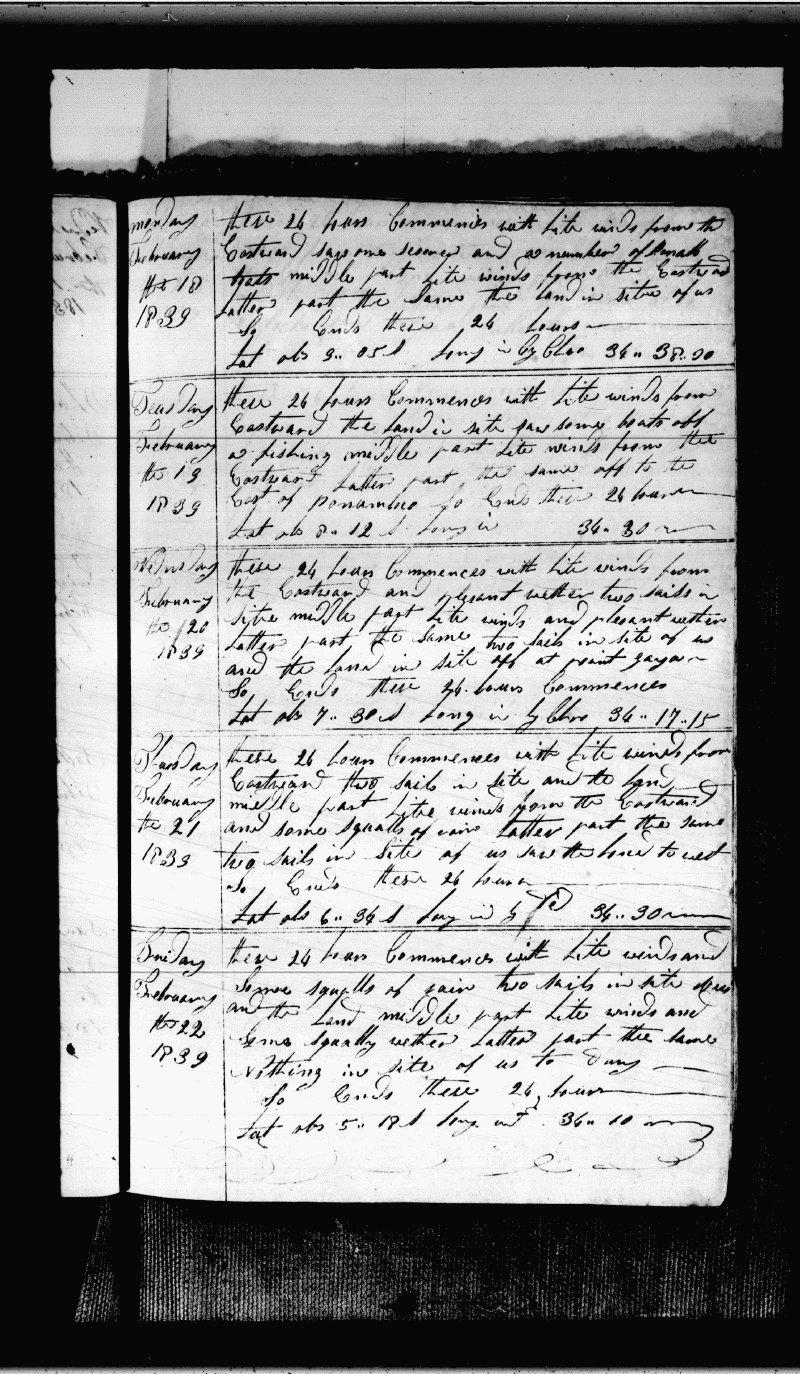 monday
February
the 18
1839
these 24 hours Commences with Lite winds from the
Eastward saw one scooner and a number of small
boats middle part Lite winds from the Eastward
Latter part the same the land in sitre of us
So Ends these 24 hours
Lat obs 9.. 05 S Long in by Chro 34.. 38..00
Teusday
February
the 19
1839
these 24 hours Commences with Lite winds from
Eastward the Land in site saw some boats off
a fishing middle part Lite winds from the
Eastward Latter part the same off to the
East of So Ends these 24 hours
Lat obs 8.. 12 S Long in 34.. 30
Wednsday
February
the 20
1839
these 24 hours Commences with Lite winds from
the Eastward and plesant wether two sails in
sitre middle part Lite winds and plesant wether
Latter part the same two sails in site of us
and the land in site off at point
So Ends these 24 hours Commences
Lat obs 7.. 30 S Long in by Chro 34.. 17..15
Thursday
February
the 21
1839
these 24 hours Commences with Lite winds from
Eastward two sails in site and the land
middle part Litre winds from the Eastward
and some squalls of rain Latter part the same
two sails in Site of us saw the land to west
So Ends these 24 hours
Lat obs 6.. 34 S Long in by 34.. 30
Friday
February
the 22
1839
these 24 hours Commences with Lite winds and
Some squalls of rain two sails in site of us
and the Land middle part Lite winds and
some squally wether Latter part the same
Nothing in site of us to
So Ends these 24 hours
Lat obs 5.. 18 S Long in 34..